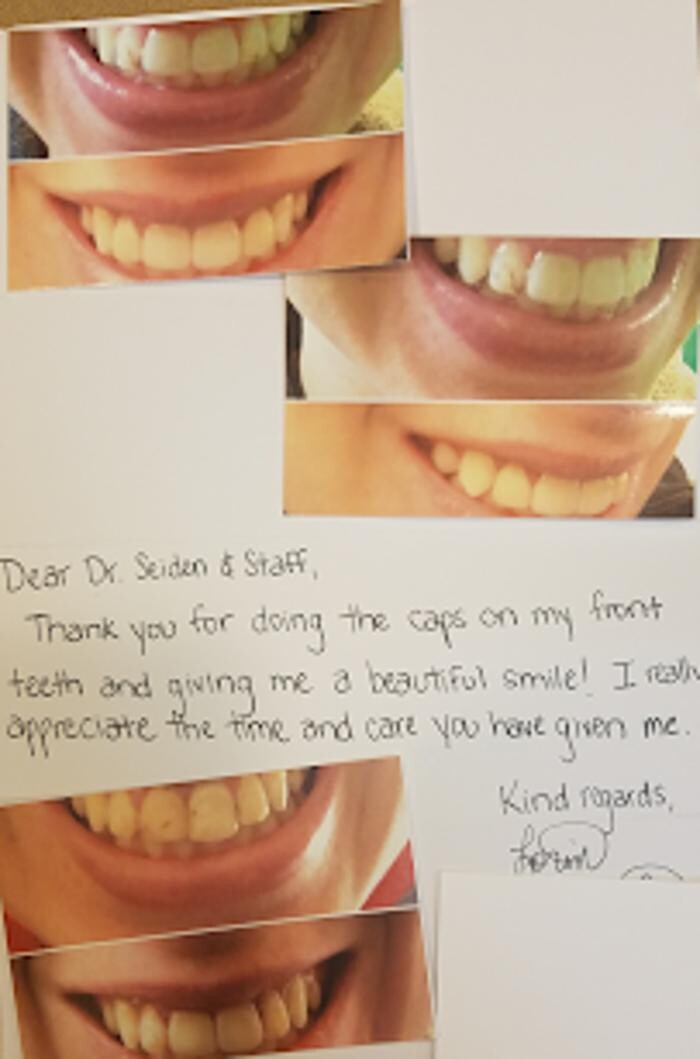 Dear Dr. Seiden & Staff,
Thank you for doing the caps on my front
teeth and giving me a beautiful smile! I really
appreciate the time and care you have given me.
Kind regards,